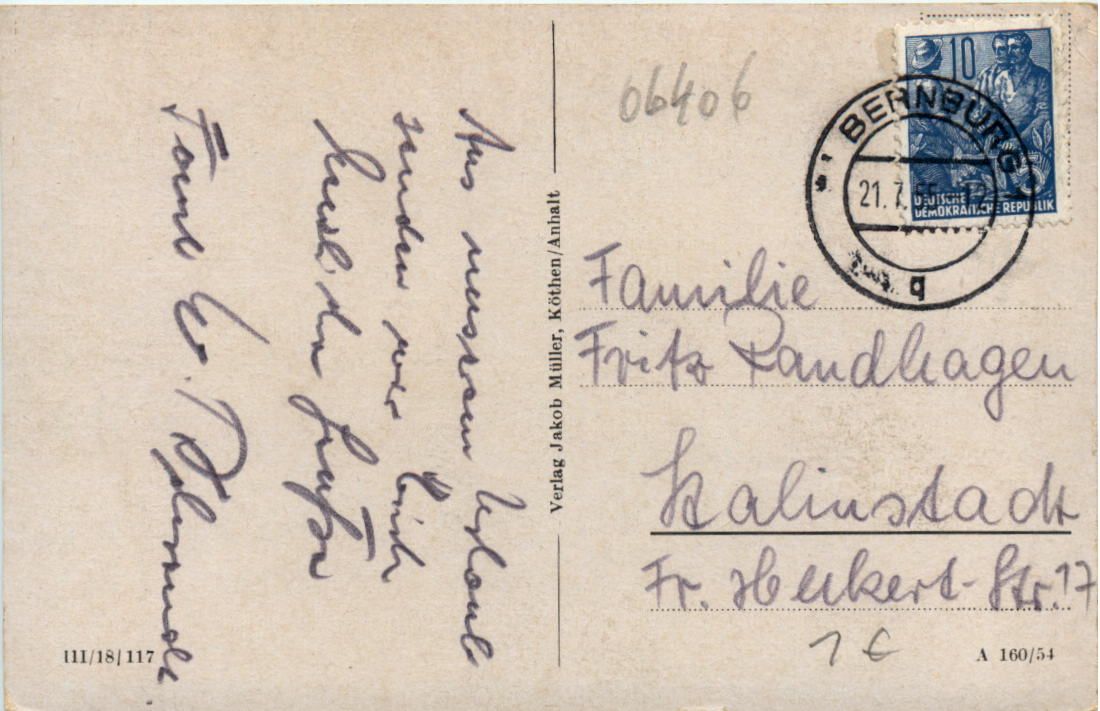 Aus unserem Urlaub
senden wir Euch
Fam.
III/18/117
Verlag Jakob Müller, Köthen/Anhalt
06406
10
DEUTSCHE
DEMOKRATISCHE REPUBLIK
BERNBURG
21.7.55-12
q
Familie
Fritz Randhagen
Stalinstadt
Fr. Heckert-Str. 17
1 €
A 160/54